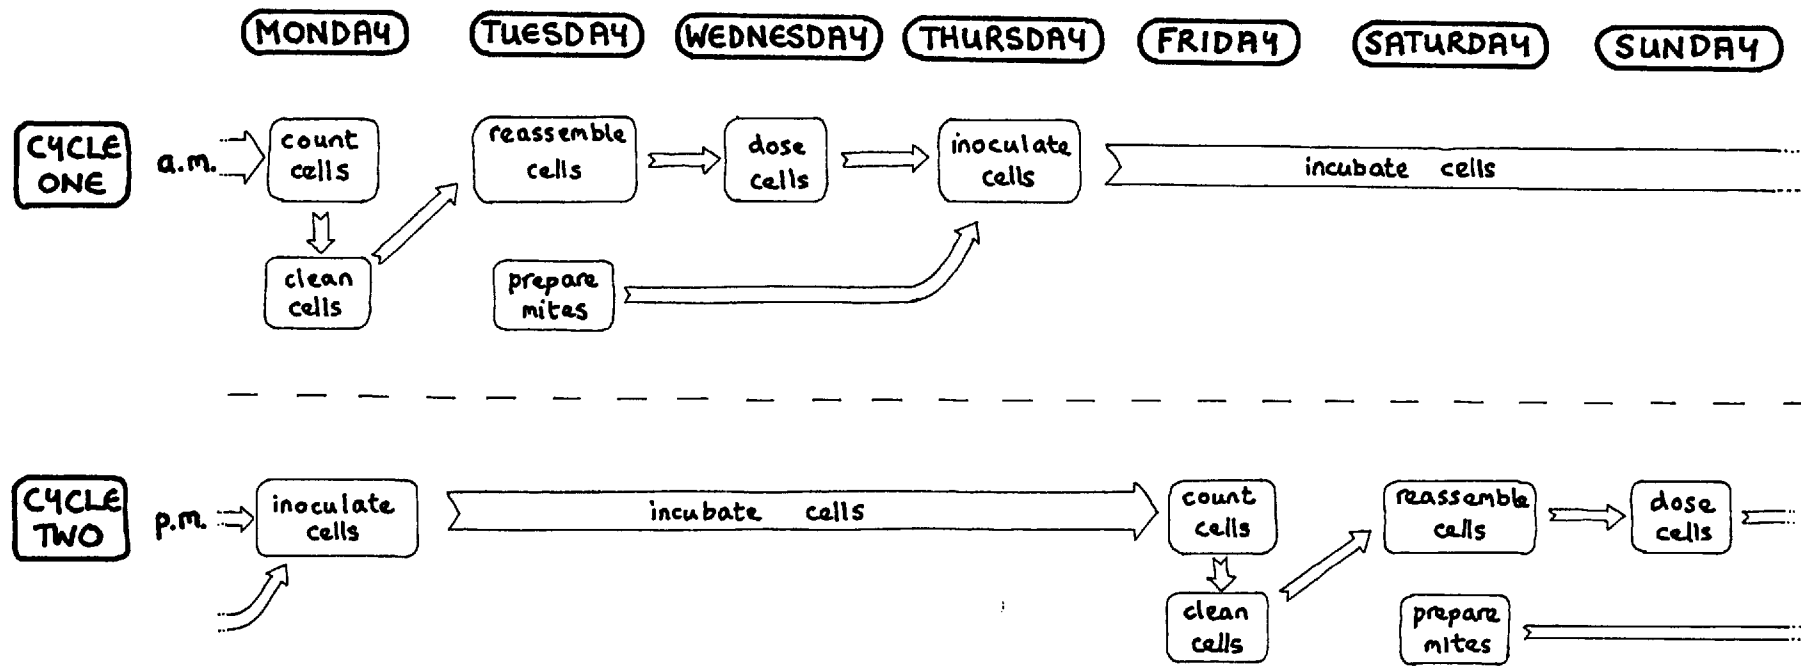 MONDAY
TUESDAY
WEDNESDAY
THURSDAY
FRIDAY
SATURDAY
SUNDAY
CYCLE
ONE
a.m.
count
cells
reassemble
cells
dose
cells
inoculate
cells
incubate cells
clean
cells
prepare
mites
CYCLE
TWO
p.m.
inoculate
cells
incubate cells
count
cells
reassemble
cells
dose
cells
clean
cells
prepare
mites